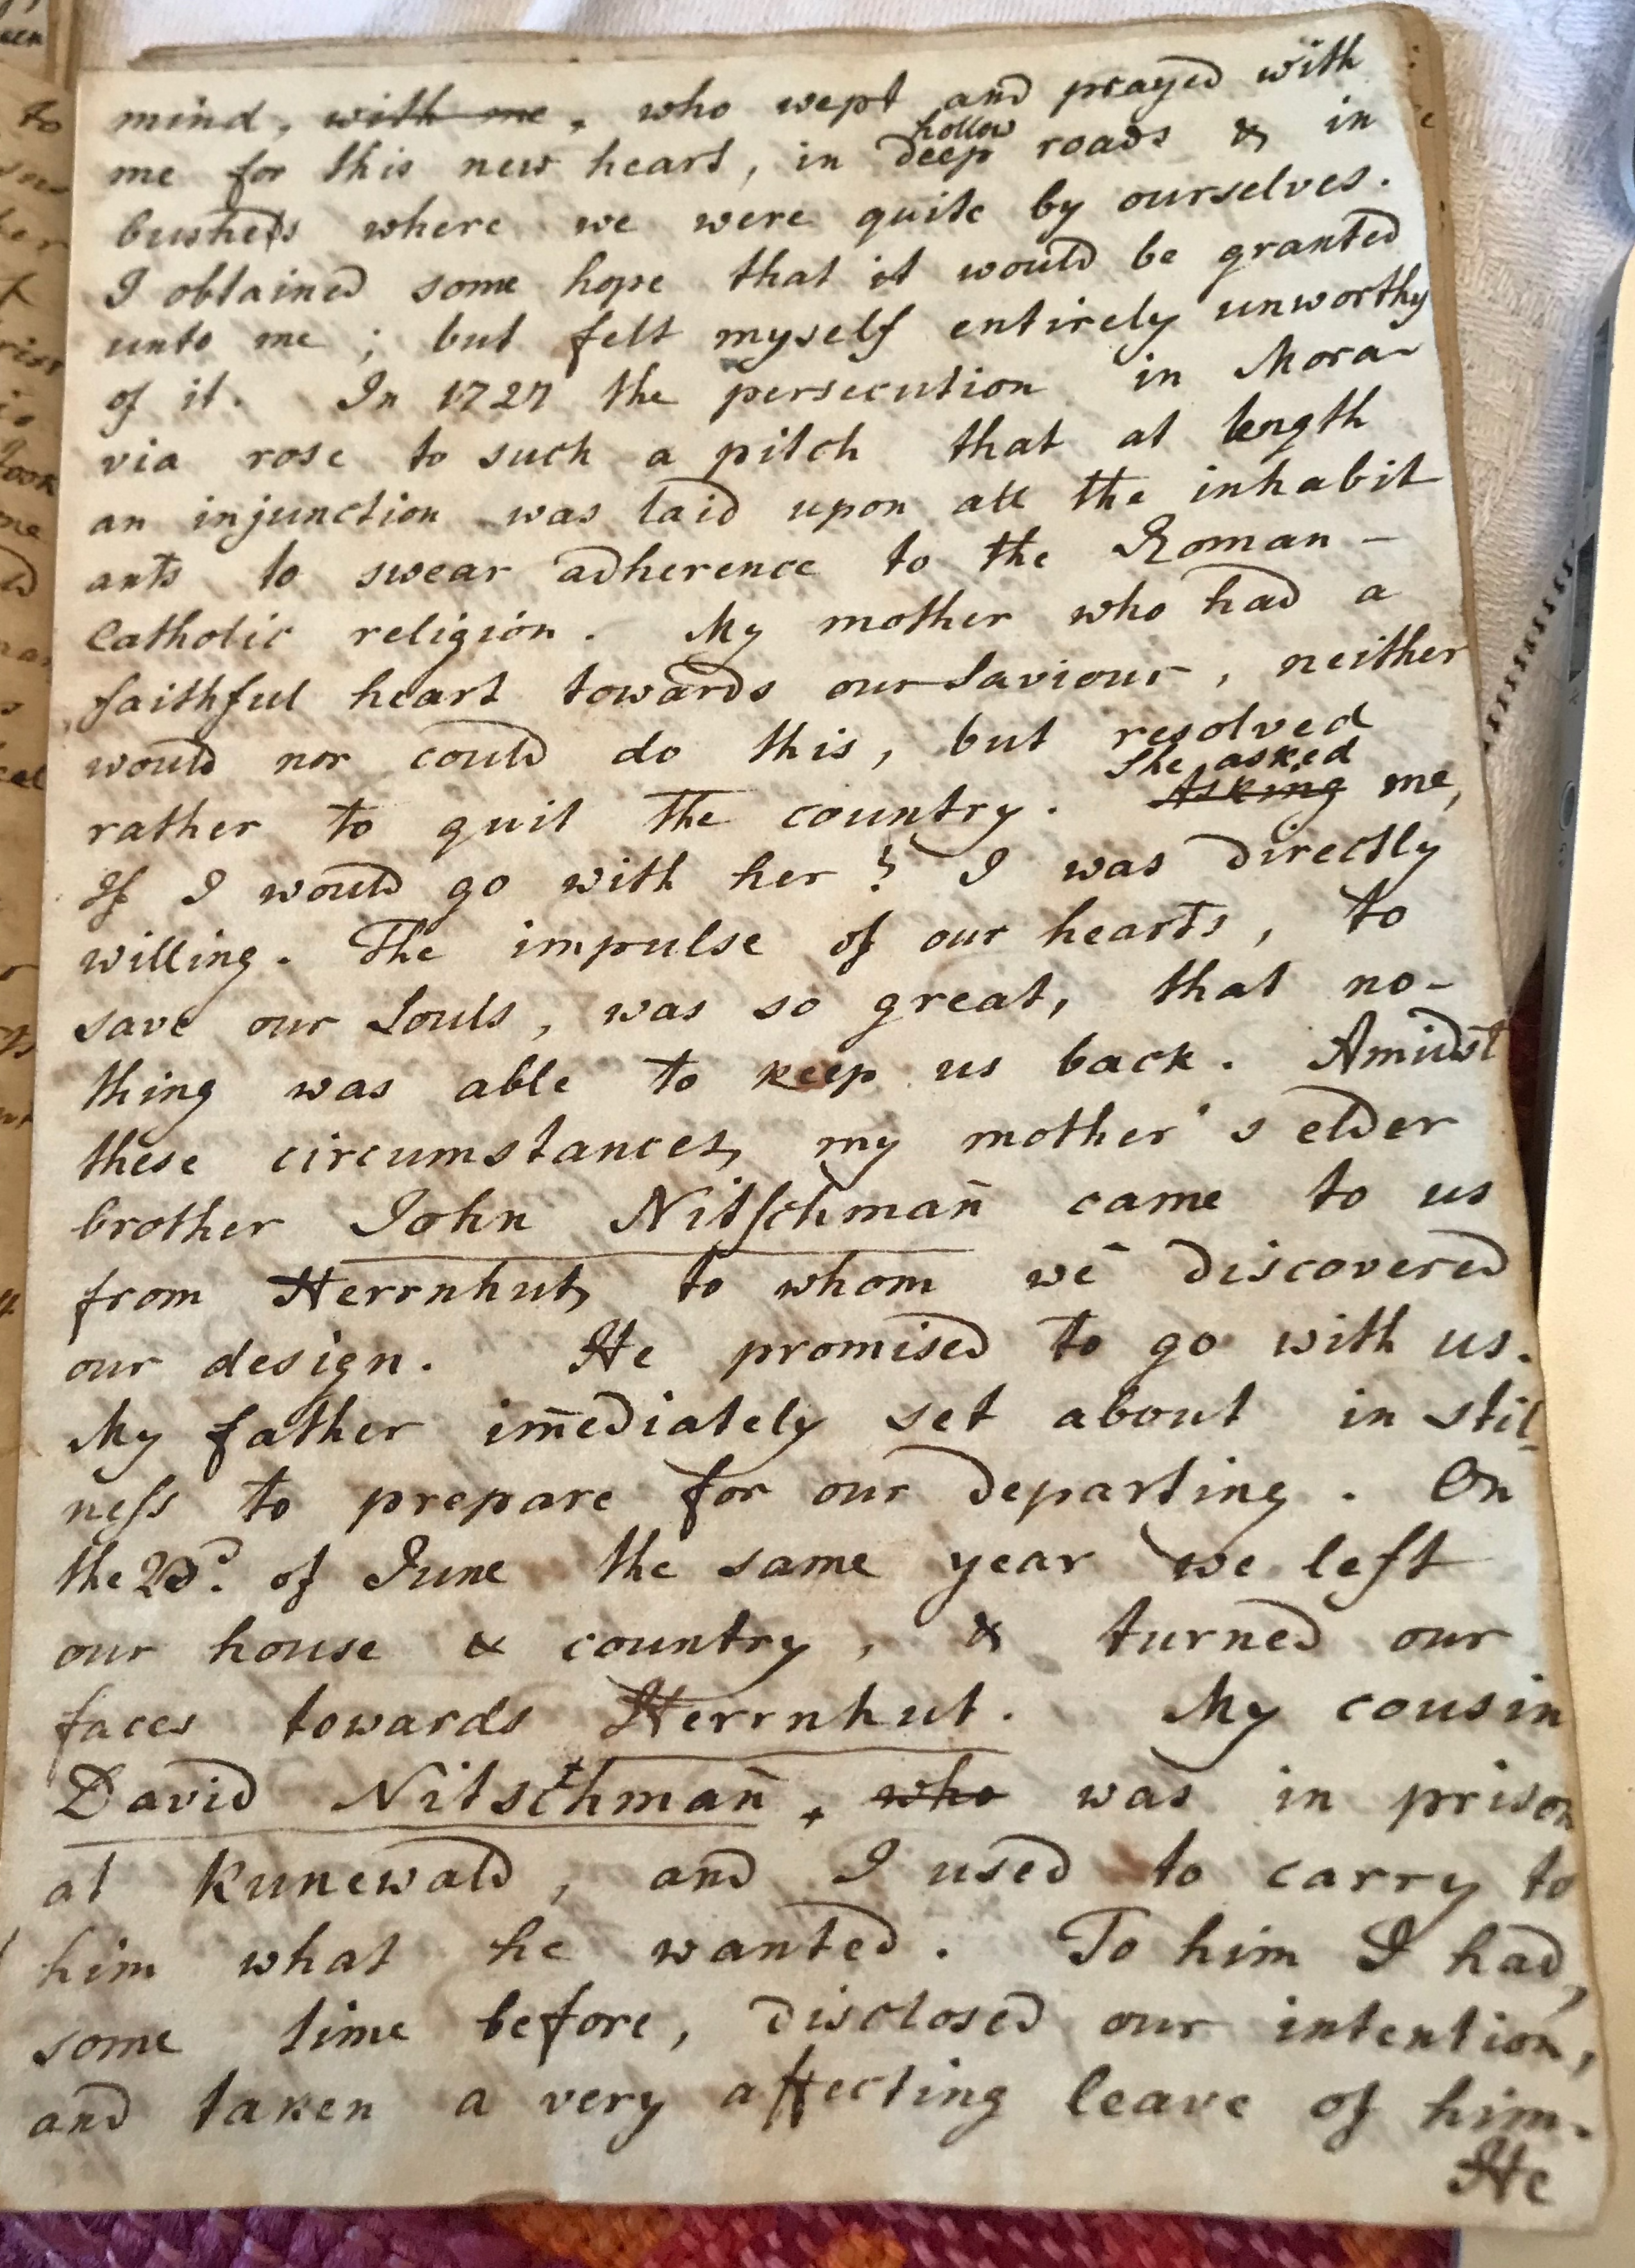 mind, with me, who wept and prayed with
hollow
me for this new heart, in deep roads & in
bushes where we were quite by ourselves.
I obtained some hope that it would be granted
unto me ; but felt myself entirely unworthy
of it. In 1727 the persecution in Mora-
via rose to such a pitch that at length
an injunction was laid upon all the inhabit
ants to swear adherence to the Roman -
Catholic religion. My mother who had a
faithful heart towards our Saviour, neither
would nor could do this, but resolved
She asked
rather to quit the country. Asking me,
If I would go with her? I was directly
willing. The impulse of our hearts, to
save our Souls, was so great, that no-
thing was able to keep us back. Amidst
these circumstances, my mother's elder
brother John Nitschman̄ came to us
from Herrnhut, to whom we discovered
our design. He promised to go with us.
My father im̄ediately set about in stil-
ness to prepare for our departing. On
the of June the same year we left
our house & country, & turned our
faces towards Herrnhut. My cousin
David Nitschman̄, who was in prison
at Kunewald, and I used to carry to
him what he wanted. To him I had,
some time before, disclosed our intention,
and taken a very affecting leave of him.
He